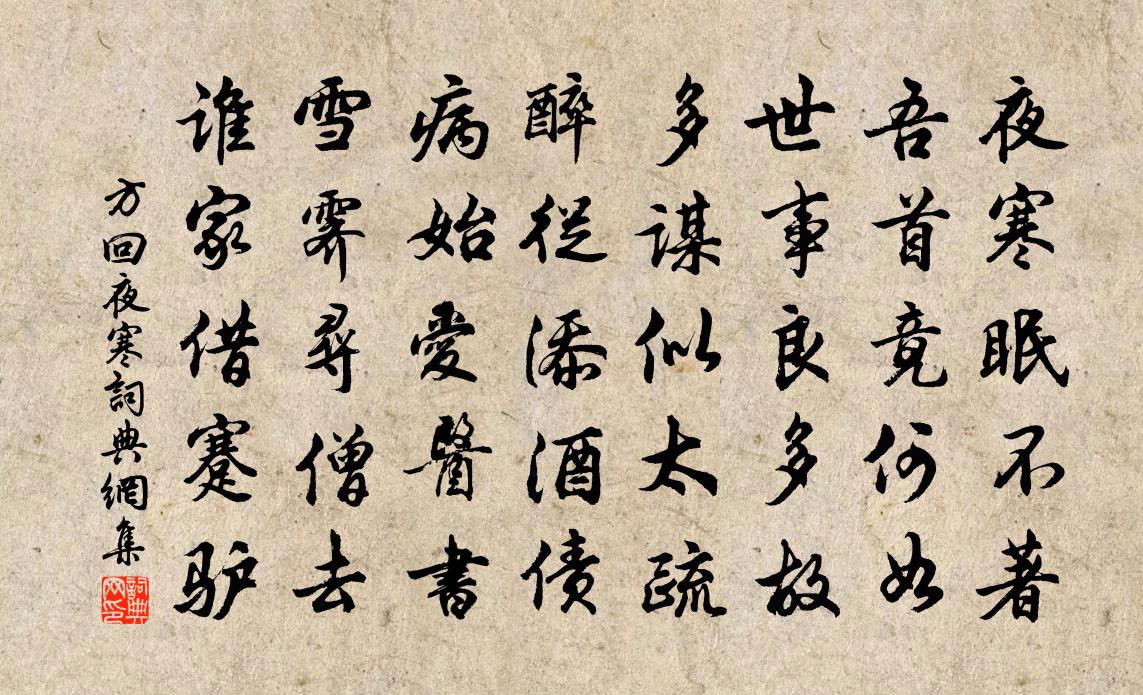 夜寒眠不著
吾首竟何如
世事良多故
多謀似太疏
醉從添酒債
病始愛醫書
雪霽尋僧去
誰家借蹇驴
方回夜寒詞典網集
詞典網印